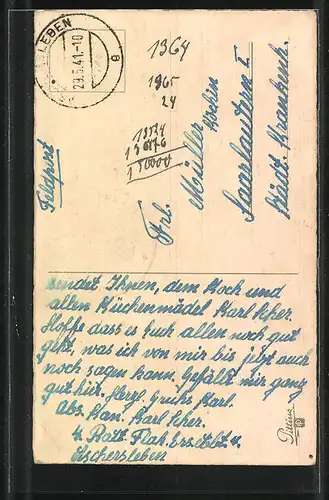 LEBEN
29.5.41-10
a
1364
1365
24
13524
13676
150000
Feldpost
Frl.
Müller
Saarlautern I.
Städt. Krankenh.
sendet Ihnen, dem Koch und
allen Küchenmädel Karl
Hoffe dass es Euch allen noch gut
geht, was ich von mir bis jetzt auch
noch sagen kann. Gefällt mir ganz
gut hier. Herzl. Grüße Karl.
Abs. Kan. Karl
4. Batt. Flak.
Aschersleben
Pittius